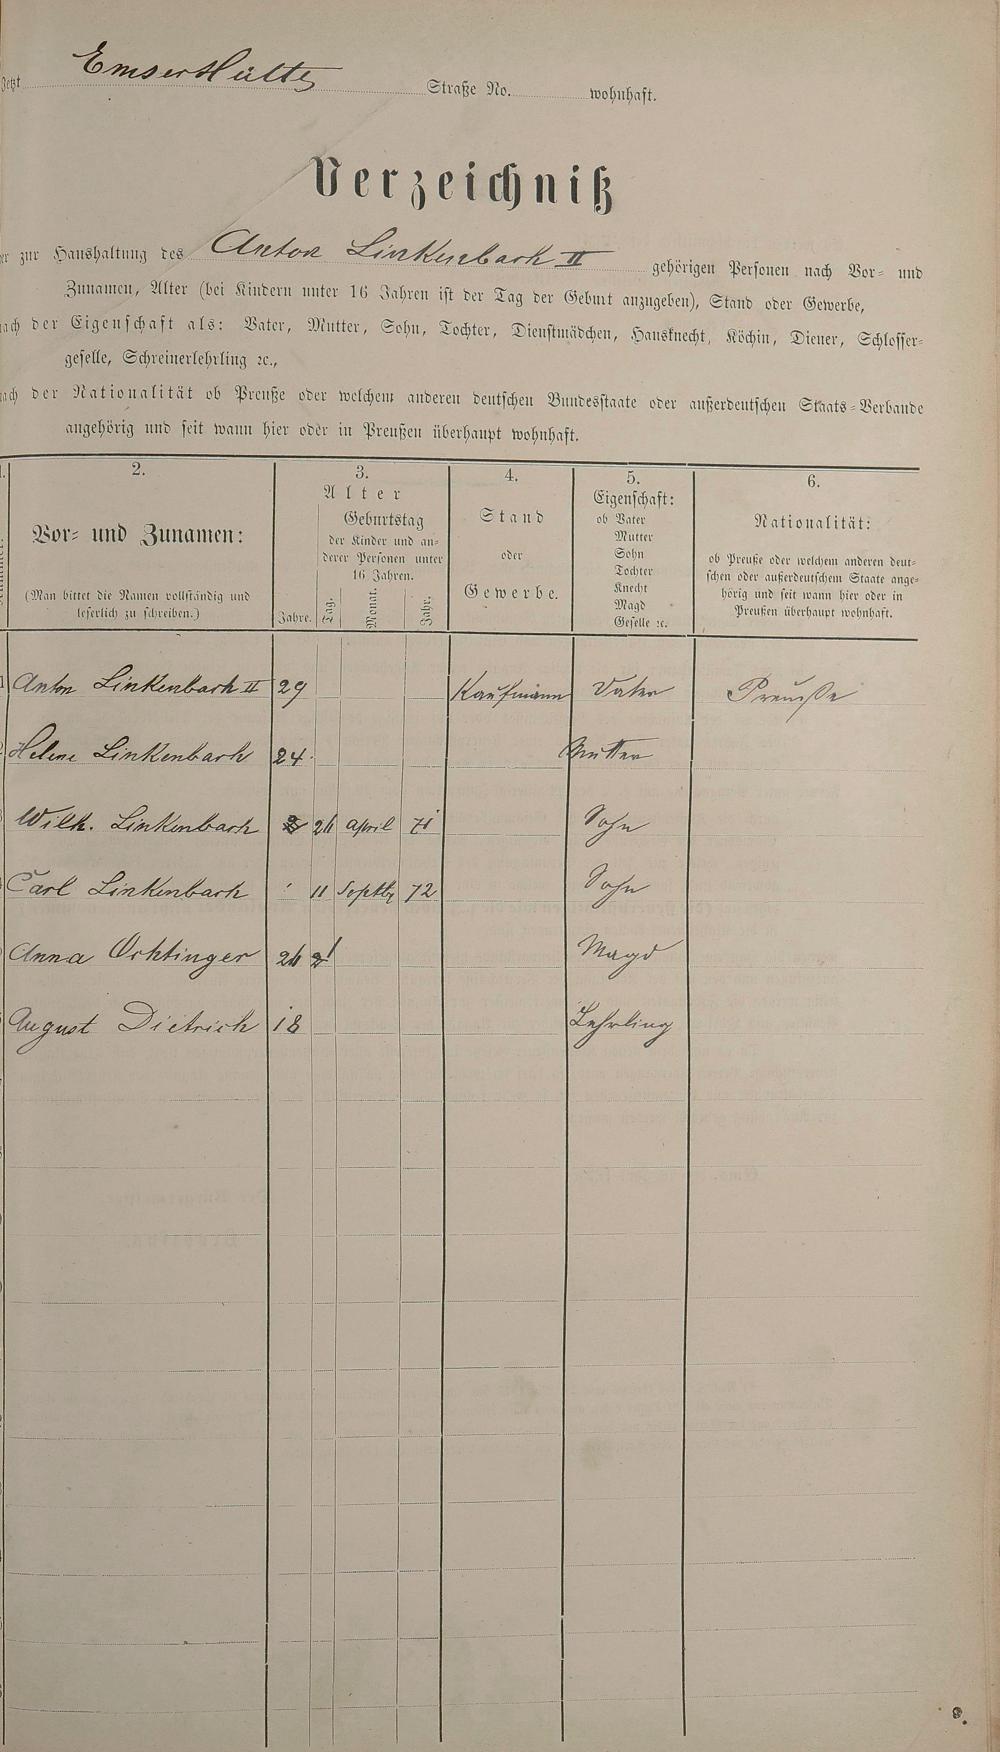 Jetzt Emser Hütte Straße No. wohnhaft.
Verzeichniß
der zur Haushaltung des Anton Linkenbach II gehörigen Personen nach Vor- und
Zunamen, Alter (bei Kindern unter 16 Jahren ist der Tag der Geburt anzugeben), Stand oder Gewerbe,
nach der Eigenschaft als: Vater, Mutter, Sohn, Tochter, Dienstmädchen, Hausknecht, Köchin, Diener, Schlosser-
geselle, Schreinerlehrling ꝛc.,
nach der Nationalität ob Preuße oder welchem anderen deutschen Bundesstaate oder außerdeutschen Staats-Verbande
angehörig und seit wann hier oder in Preußen überhaupt wohnhaft.
2. 3. 4. 5. 6.
Vor- und Zunamen:
(Man bittet die Namen vollständig und
leserlich zu schreiben.)
Alter
Geburtstag
der Kinder und an-
derer Personen unter
16 Jahren.
Jahre. Tag. Monat. Jahr.
Stand
oder
Gewerbe.
Eigenschaft:
ob Vater
Mutter
Sohn
Tochter
Knecht
Magd
Geselle ꝛc.
Nationalität:
ob Preuße oder welchem anderen deut-
schen oder außerdeutschem Staate ange-
hörig und seit wann hier oder in
Preußen überhaupt wohnhaft.
1 Anton Linkenbach II 29 Kaufmann Vater Preuße
Helene Linkenbach 24 Mutter
Wilh. Linkenbach 26 April 71 Sohn
Carl Linkenbach 11 Septbr 72 Sohn
Anna Ochtinger 26 Magd
August Dietrich 18 Lehrling